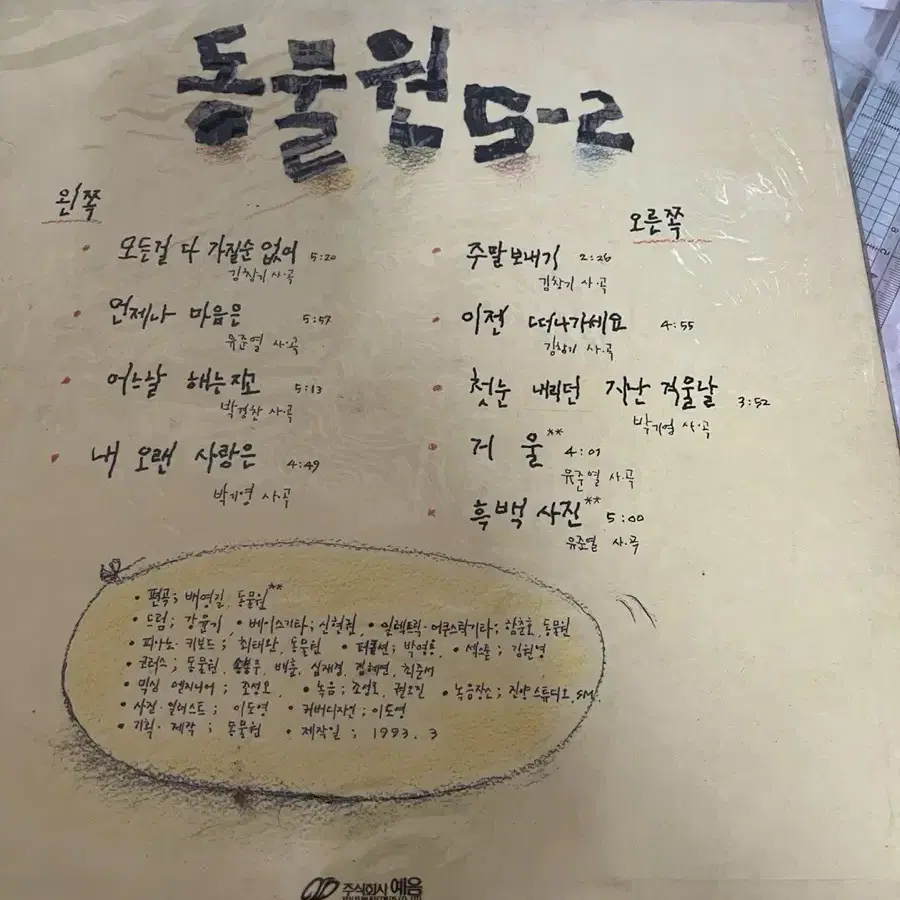 동물원 5-2
왼쪽
모든걸 다 가질순 없어 5:20
김창기 사·곡
언제나 마음은 5:57
유준열 사·곡
어스날 해는지고 5:13
박경찬 사·곡
내 오랜 사랑은 4:49
박기영 사·곡
오른쪽
주말 보내기 2:26
김창기 사·곡
이젠 떠나가세요 4:55
김창기 사·곡
첫눈 내리던 지난 겨울날 3:52
박기영 사·곡
거울** 4:01
유준열 사·곡
흑백 사진** 5:00
유준열 사·곡
• 편곡; 배영길, 동물원**
• 드럼; 강윤기, • 베이스기타; 신현권, • 일렉트릭·어쿠스틱기타; 함춘호, 동물원
• 피아노·키보드; 최태완, 동물원 • 퍼쿠션; 박영용, • 섹스폰; 김원영
• 코러스; 동물원, 배훈, 심재경, 김혜연, 최준서
• 믹싱 엔지니어; 조성오, • 녹음; 조성오, • 녹음장소; 진양스튜디오, SM
• 사진·일러스트; 이도영 • 커버디자인; 이도영
• 기획·제작; 동물원 • 제작일; 1993. 3
주식회사 예음